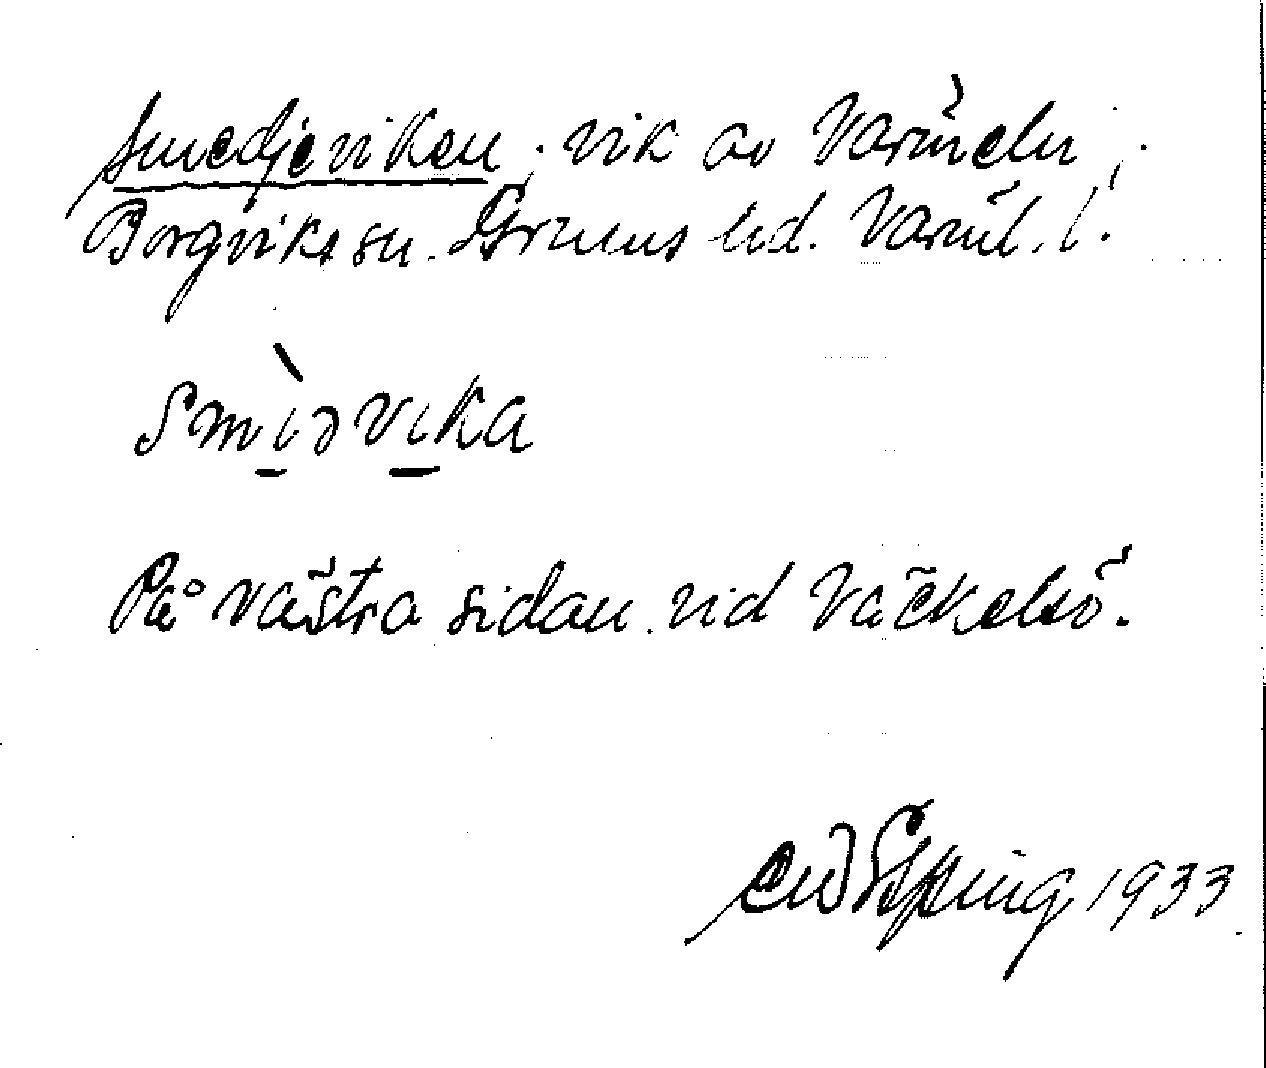 Smedjeviken; vik av Värmeln i
Borgviks sn. Grums hd. Värml. l.
Smìəvika
På västra sidan vid Väckelsö.
1933